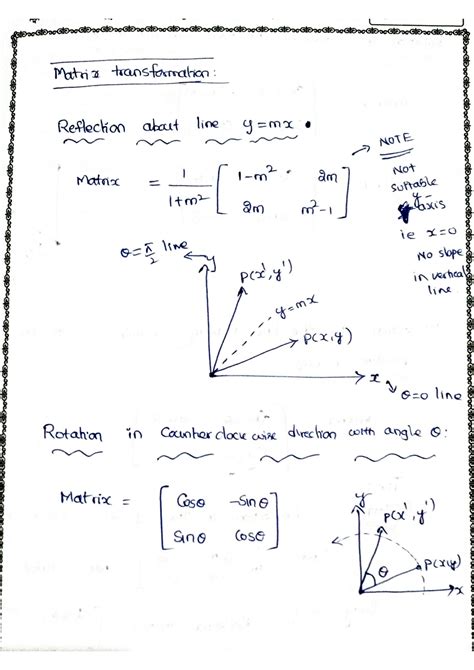 Matrix transformation:
Reflection about line y=mx.
Matrix = 1/(1+m²) [ 1-m² 2m
2m m²-1 ]
→ NOTE
Not
suitable
y-axis
ie x=0
No slope
in vertical
line
θ=π/2 line
y
P(x', y')
y=mx
P(x,y)
x
θ=0 line
Rotation in Counter clock wise direction with angle θ:
Matrix = [ Cosθ -Sinθ
Sinθ Cosθ ]
y
P(x', y')
θ
P(x,y)
x